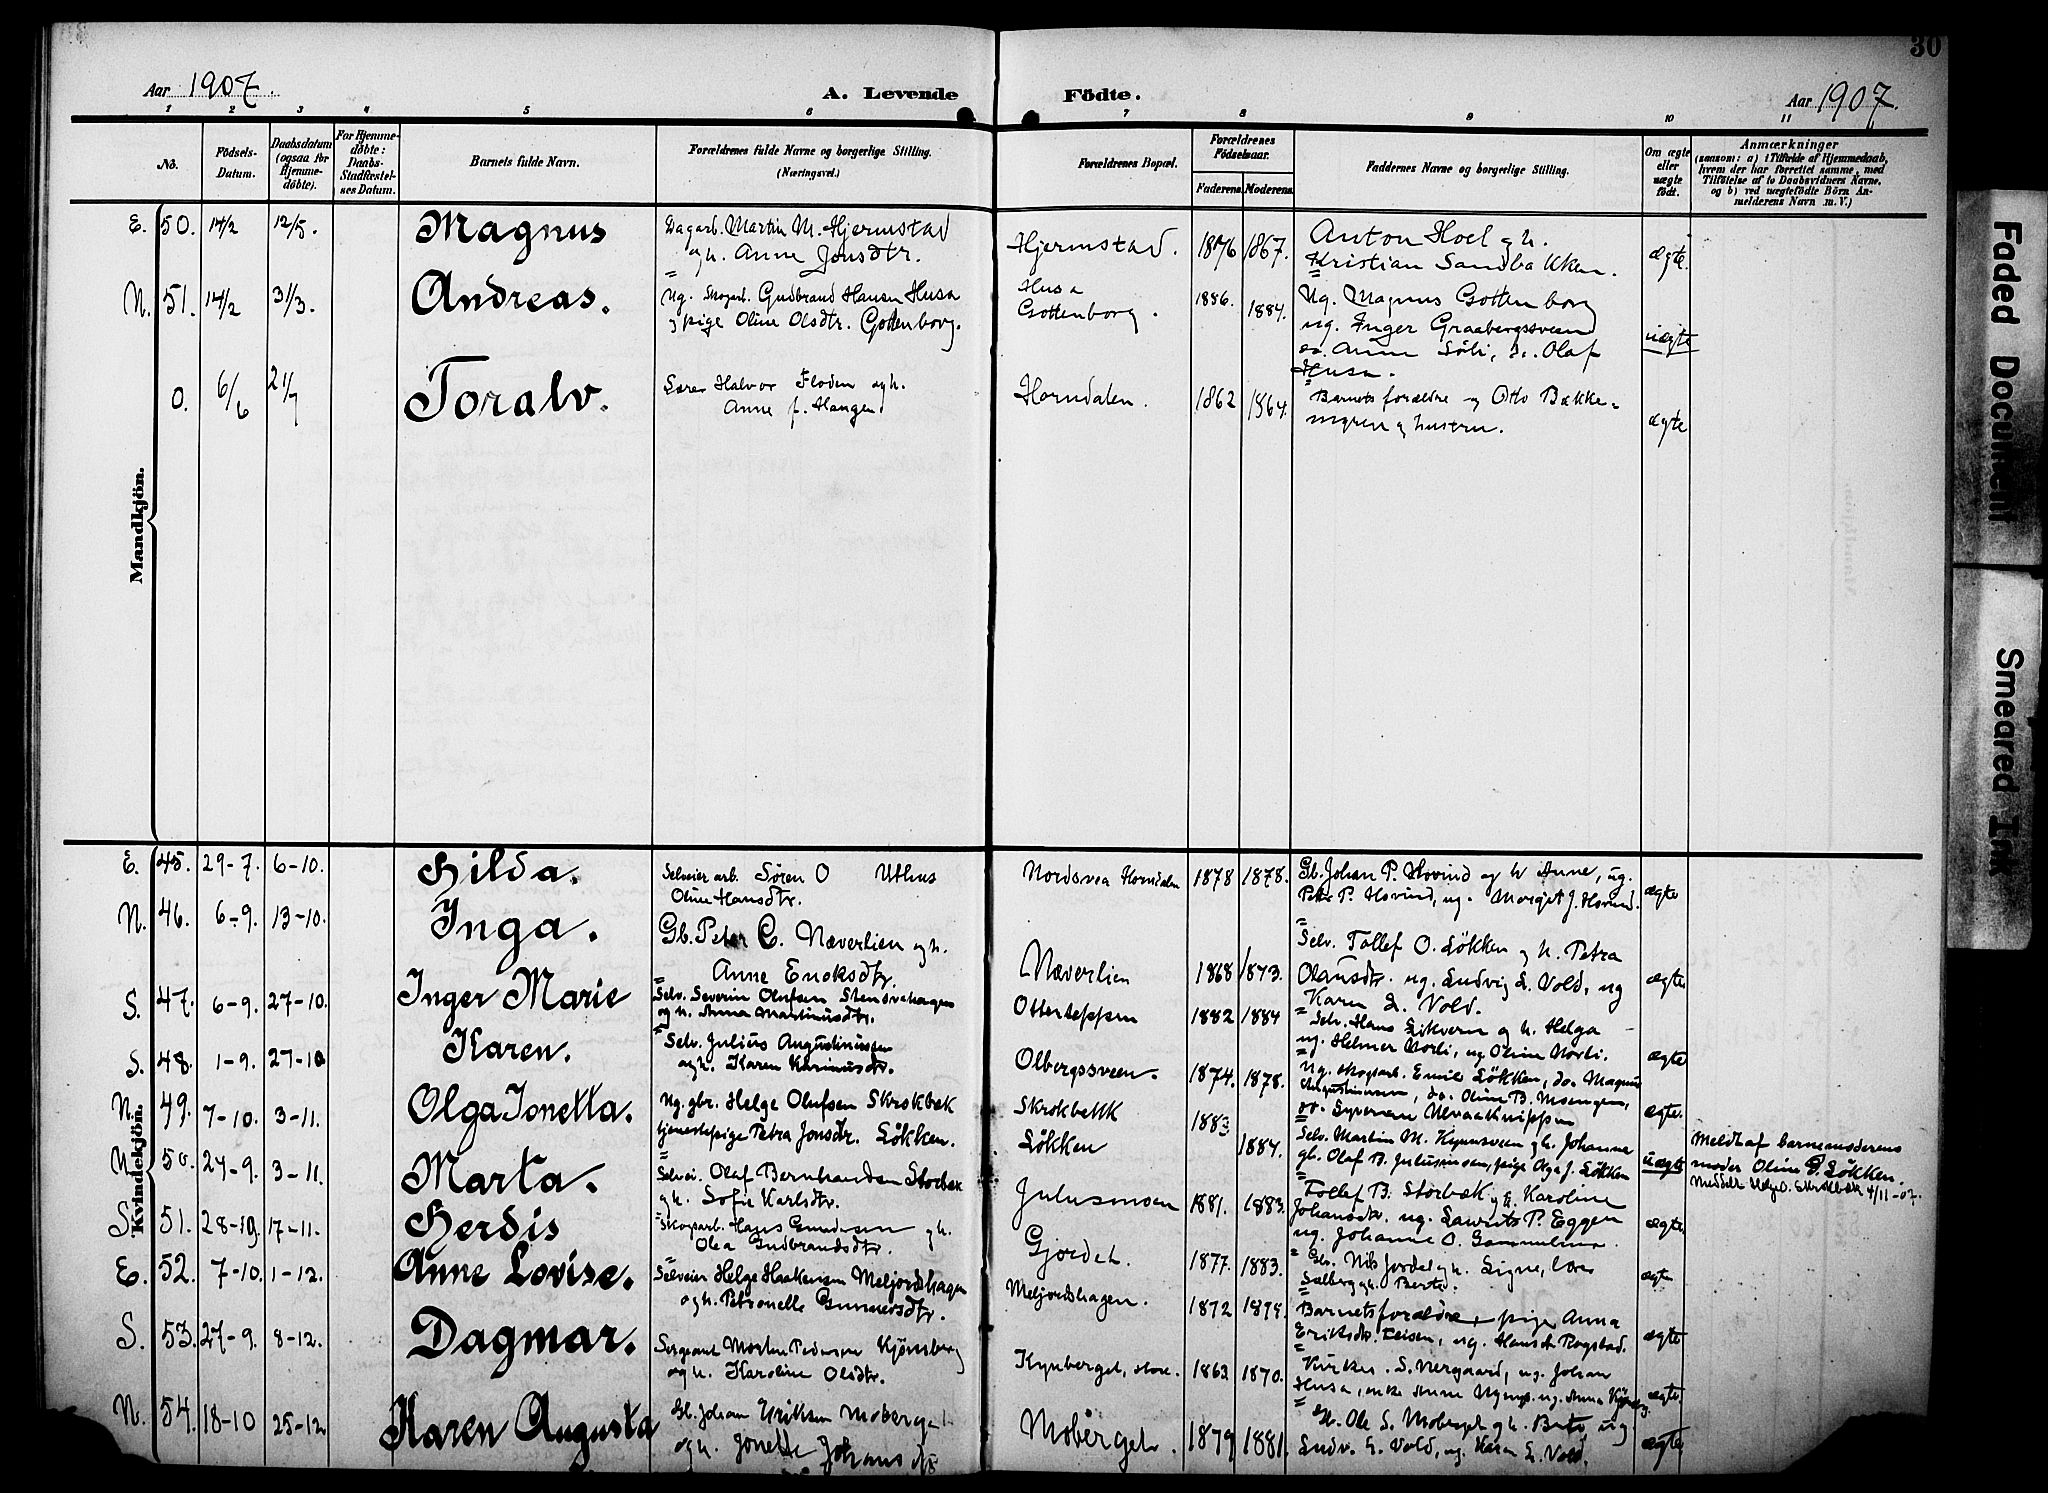 30
Aar 1907.
A. Levende Födte.
Aar 1907.
1 2 3 4 5 6 7 8 9 10 11
No.
Födsels-Datum.
Daabsdatum (ogsaa for Hjemmedöbte).
For Hjemmedöbte: Daabs-Stadfæstelses Datum.
Barnets fulde Navn.
Forældrenes fulde Navne og borgerlige Stilling. (Næringsvei.)
Forældrenes Bopæl.
Forældrenes Födselsaar.
Faderens. Moderens.
Faddernes Navne og borgerlige Stilling.
Om ægte eller uægte födt.
Anmærkninger
(saasom: a) i Tilfælde af Hjemmedaab, hvem der har forrettet samme, med Tilföielse af to Daabsvidners Navne, og b) ved uægtefödte Börn Anmelderens Navn m. V.)
Mandkjön.
E. 50. 14/2 12/5. Magnus
Dagarb. Martin M. Hjermstad
og h. Anne Jonsdtr.
Hjermstad. 1876 1867.
Anton Hoel og h.
Kristian Sandbakken. ægte.
N. 51. 14/2 31/3. Andreas.
Ug. Skogarb. Gudbrand Hansen Husa
og pige Oline Olsdtr. Gottenborg.
Husa
Gottenborg. 1886. 1884.
Ug. Magnus Gottenborg
ug. Inger Graabergssveen
do. Anne Löli, do. Olaf
Husa. uægte
0. 6/6 21/7 Toralv.
Lærer Halvor Floden og h.
Anne f. Haugen
Horndalen. 1862 1864.
Barnets forældre og Otto Bække-
ngren og hustru. ægte
Kvindekjön.
E. 45. 29-7. 6-10. Hilda.
Selveier arb. Sören O Uthus
Oline Hansdtr.
Nordsvea Horndalen 1878 1878.
Gb. Johan P. Hovind og h Anne, ug.
Peter P. Hovind, ug. Margit J. Hovind. ægte
N. 46. 6-9. 13-10. Inga.
Gb. Peter C. Næverlien og h.
Anne Enoksdtr.
Næverlien 1868 1873.
Selv. Tollef O. Lökken og h. Petra
Olausdtr. ug. Ludvig L. Vold, ug
Karen L. Vold. ægte
S. 47. 6-9. 27-10. Inger Marie
Selv. Severin Olufsen
og h. Anna Martinusdtr.
1882 1884
Selv. Hans og h. Helga
ug. Helmer Norli, ug Oline Norli. ægte
S. 48. 1-9. 27-10 Karen.
Selv. Julius Augustinussen
og h. Karen Karinusdtr.
Olbergssveen. 1874. 1878.
Ug. skogarb. Emil Lökken, do. Magnus
Augustinussen, do. Oline B. Moengen,
do. ægte.
N. 49. 7-10. 3-11. Olga Jonetta.
Ug. gbr. Helge Olufsen Skrokbæk
tjenestepige Petra Jonsdtr. Lökken.
Skrokbekk
Lökken 1883 1884.
Selv. Martin M. Kynnsveen og h. Johanne
gb. Olaf B. Juliusmoen, pige Olga J. Lökken uægte
Meldt af barnemoderens
moder Oline Lökken.
Meddelt Helge O. Skrokbæk 4/11-07.
N. 50. 24-9. 3-11. Marta.
Selvei. Olaf Bernhardsen Storbæk
og h. Sofie Karlsdtr.
Juliusmoen 1881. 1883.
Tollef B. Storbæk og h. Karoline
Johansdtr. ug. Laurits P. Eggen
ug. Johanne O. ægte
S. 51. 28-10. 17-11. Herdis
Skogarb. Hans og h.
Olea Gudbrandsdtr.
Gjordet. 1877. 1883.
Nils Jordet og h. Signe, Lars
Sælberg og h. Berte. ægte
E. 52. 7-10. 1-12. Anne Lovise.
Selveier Helge Haakensen Meljordshagen
og h. Petronelle Gunnersdtr.
Meljordshagen. 1872 1874.
Barnets forældre, pige Anna
Eriksdtr. ug. Hans Rogstad. ægte
S. 53. 27-9. 8-12. Dagmar.
Sergeant Morten Pedersen Kjönsberg
og h. Karoline Olsdtr.
Kynberget, store. 1863 1870.
Kirkes. S. Nergaard, ug. Johan
Husa, enke Anne ug. Anna ægte
N. 54. 18-10 25-12 Karen Augusta
Gb. Johan Eriksen Moberget
og h. Jonette Johansdtr
Moberget. 1879 1881.
Gb. Ole S. Moberget og h. Berte, ug.
Ludv. L. Vold, ug. Karen L. Vold. ægte
Faded Document
Smeared Ink